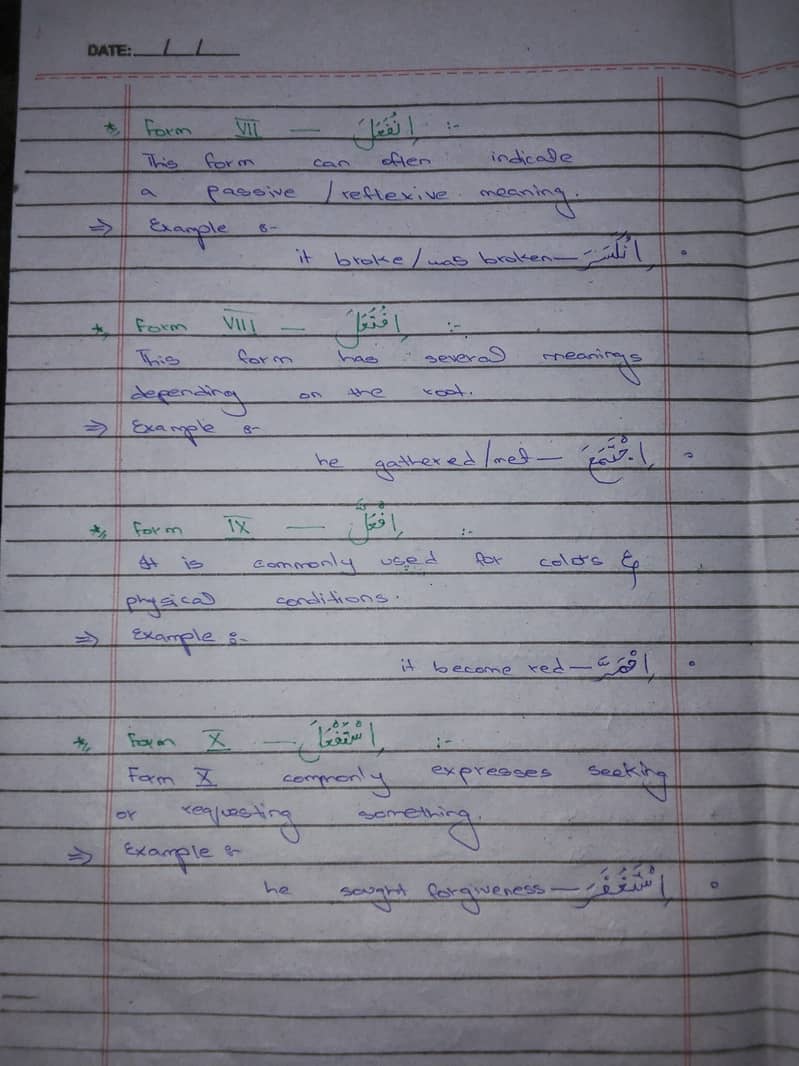 DATE: / /
* Form VII — اِنْفَعَلَ :-
This form can often indicate
a passive / reflexive meaning.
⇒ Example :-
it broke / was broken — اِنْكَسَرَ •
* Form VIII — اِفْتَعَلَ :-
This form has several meanings
depending on the root.
⇒ Example :-
he gathered / met — اِجْتَمَعَ •
* Form IX — اِفْعَلَّ :-
It is commonly used for colors &
physical conditions.
⇒ Example :-
it become red — •
* Form X — اِسْتَفْعَلَ :-
Form X commonly expresses seeking
or requesting something.
⇒ Example :-
he sought forgiveness — اِسْتَغْفَرَ •